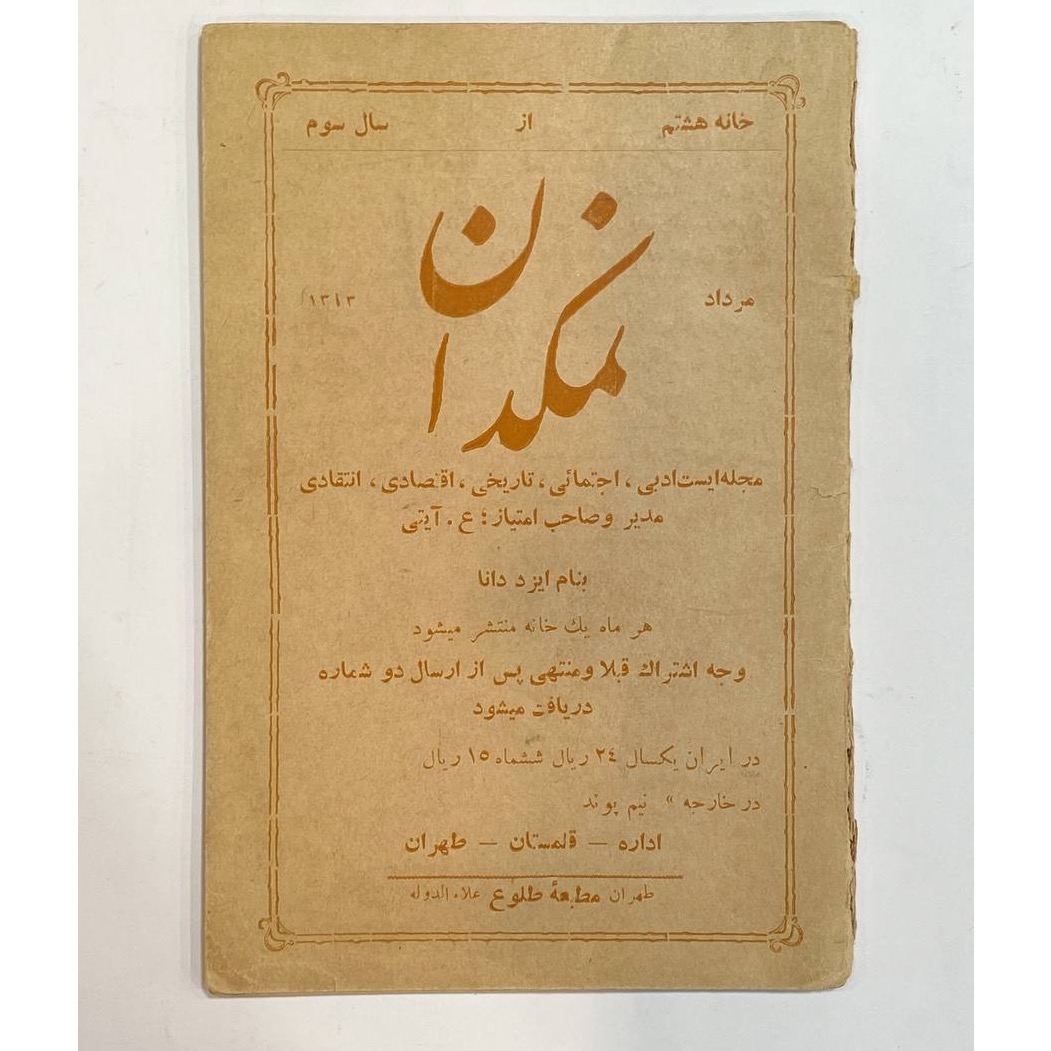 خانه هشتم از سال سوم
نمکدان
مرداد ۱۳۱۳
مجله ایست ادبی ، اجتمائی ، تاریخی ، اقتصادی ، انتقادی
مدیر و صاحب امتیاز : ع . آیتی
بنام ایزد دانا
هر ماه یك خانه منتشر میشود
وجه اشتراك قبلا ومنتهی پس از ارسال دو شماره
دریافت میشود
در ایران یکسال ٢٤ ریال ششماه ١٥ ریال
در خارجه » نیم پوند
اداره – قلمستان – طهران
طهران مطبعۀ طلوع علاءالدوله